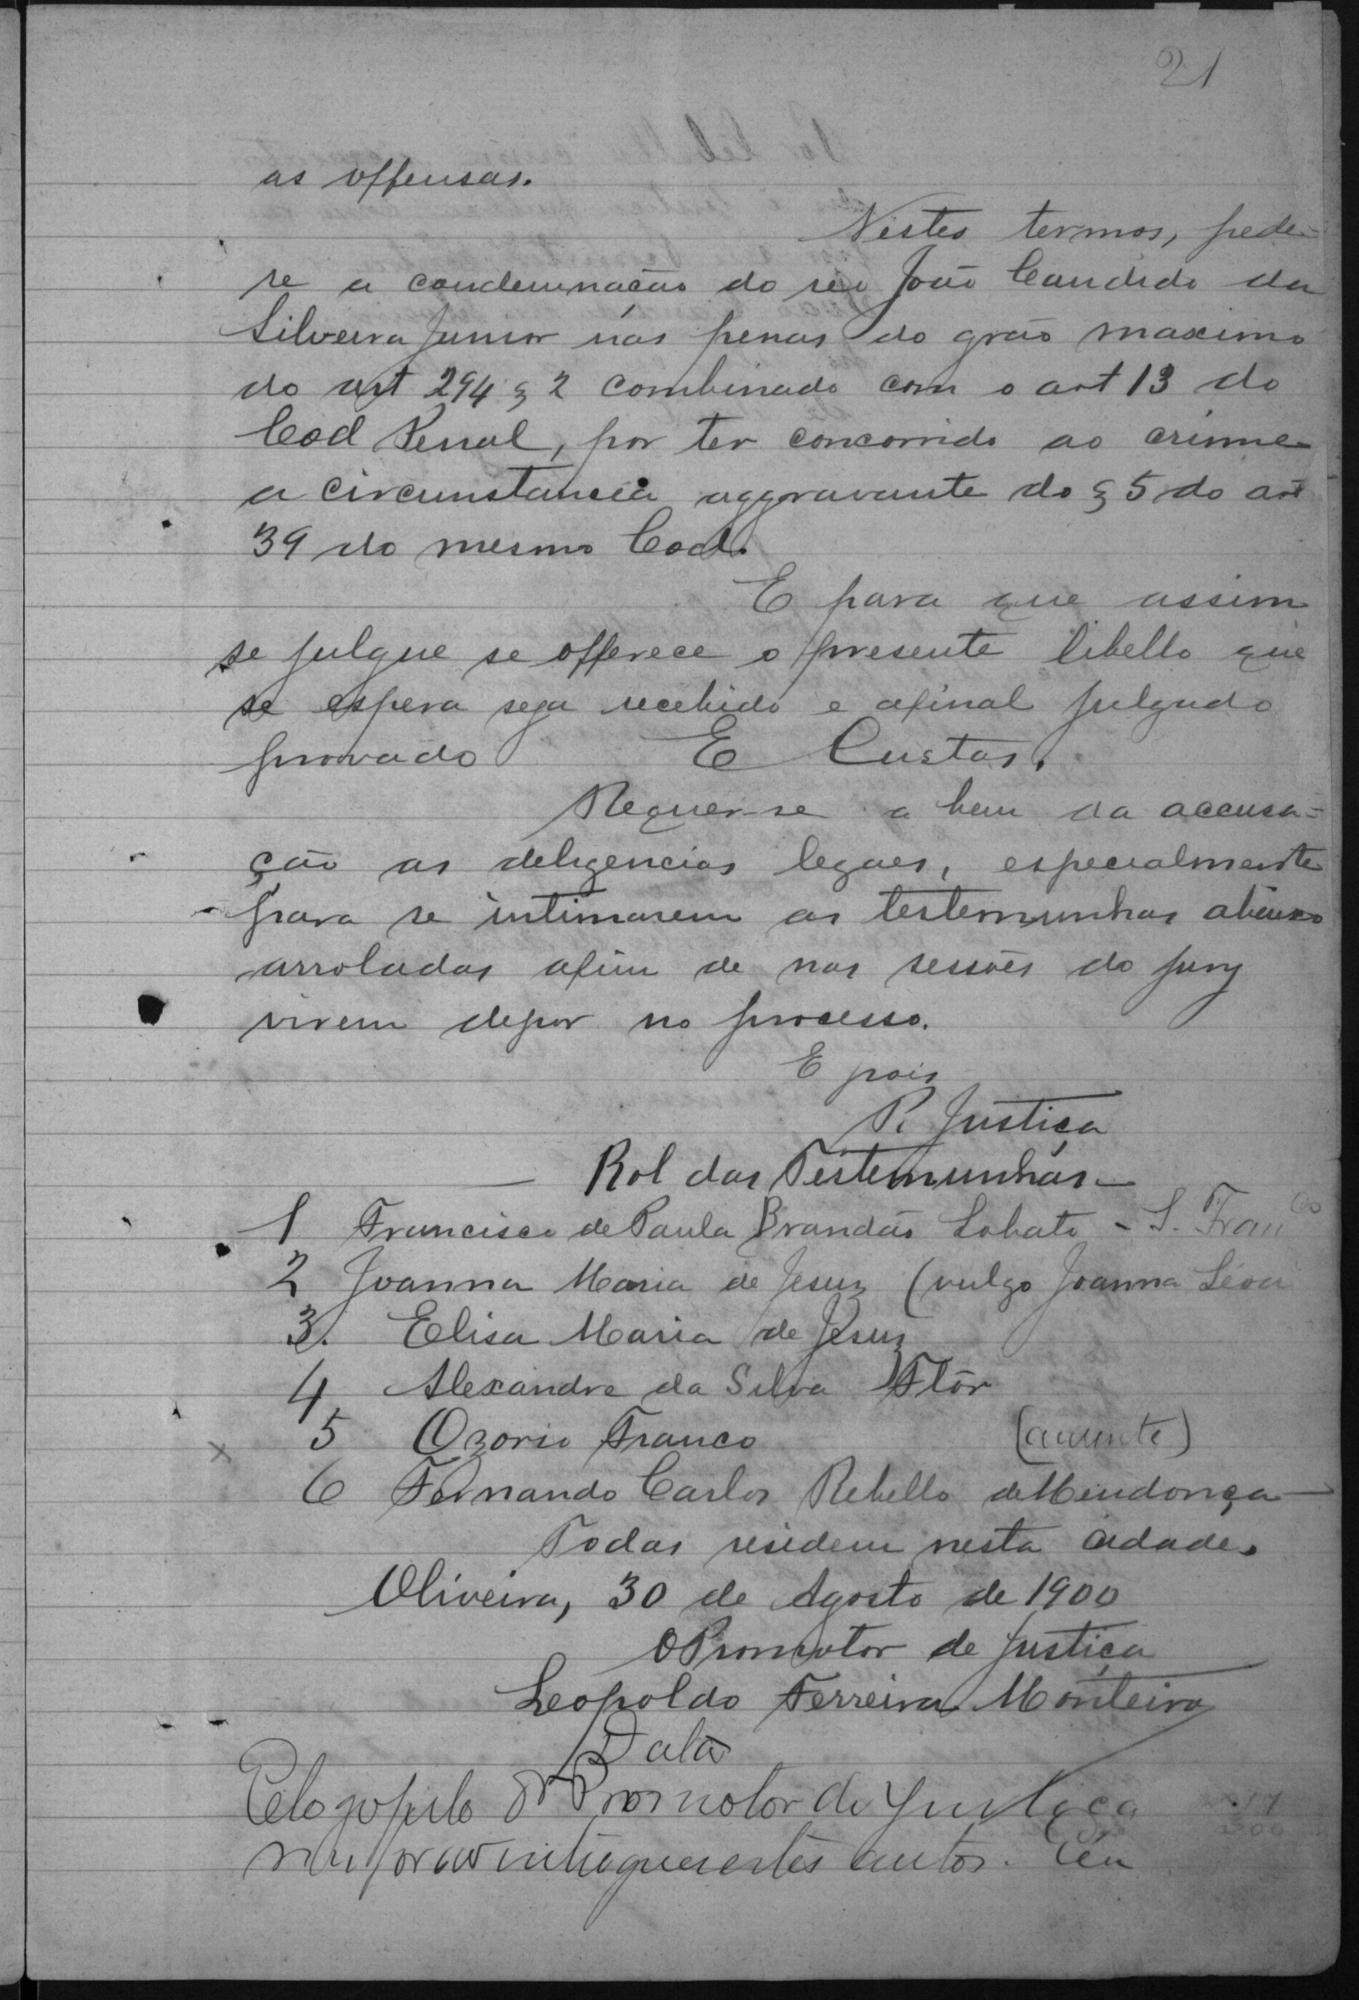 21
as offensas.
Nestes termos, pede-
se a condemnacão do reu João Candido da
Silveira Junior nas penas do gráo maximo
do art 294 § 2 combinado com o art 13 do
Cod Penal, por ter concorrido ao crime
a circunstancia aggravante do § 5 do art
39 do mesmo Cod.
E para que assim
se julgue se offerece o presente libello que
se espera seja recebido e afinal julgado
provado E Custas.
Requer-se a bem da accusa-
ção as deligencias legaes, especialmente
para se intimarem as testemunhas abaixo
arroladas afim de nas sessões do jury
virem depor no processo.
E pois
P. Justiça
Rol das Testemunhas
1 Francisco de Paula Brandão Lobato - S. Franco
2 Joanna Maria de Jesus (vulgo Joanna
3. Elisa Maria de Jesus
4 Alexandre da Silva Flôr
5 Ozorio Franco (ausente)
6 Fernando Carlos Rebello de Mendonça
Todas residem nesta cidade.
Oliveira, 30 de Agosto de 1900
O Promotor de Justiça
Leopoldo Ferreira Monteiro
Data
Promotor de Justiça
estes autos. Eu